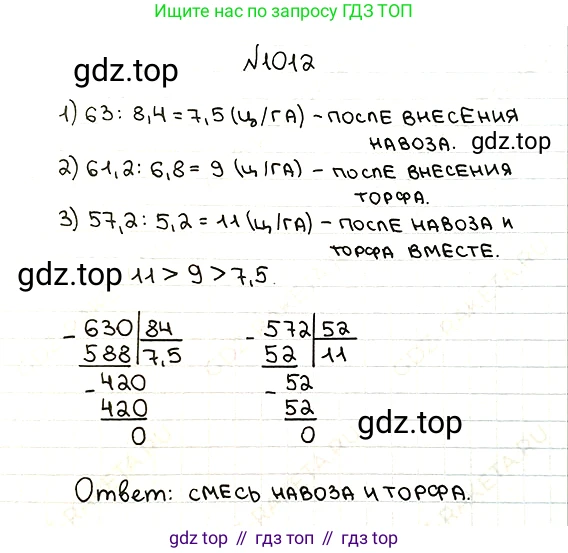 Ищите по запросу ГДЗ ТОП
gdz.top
№1012
1) 63 : 8,4 = 7,5 (ц/га) – после внесения
навоза. gdz.top
2) 61,2 : 6,8 = 9 (ц/га) – после внесения
торфа.
3) 57,2 : 5,2 = 11 (ц/га) – после навоза и
торфа вместе.
gdz.top 11 > 9 > 7,5.
- 630 84 - 572 52
588 7,5 52 11
- 420 - 52
420 52
0 0 gdz.top
Ответ: смесь навоза и торфа.
gdz top // гдз топ // gdz.top